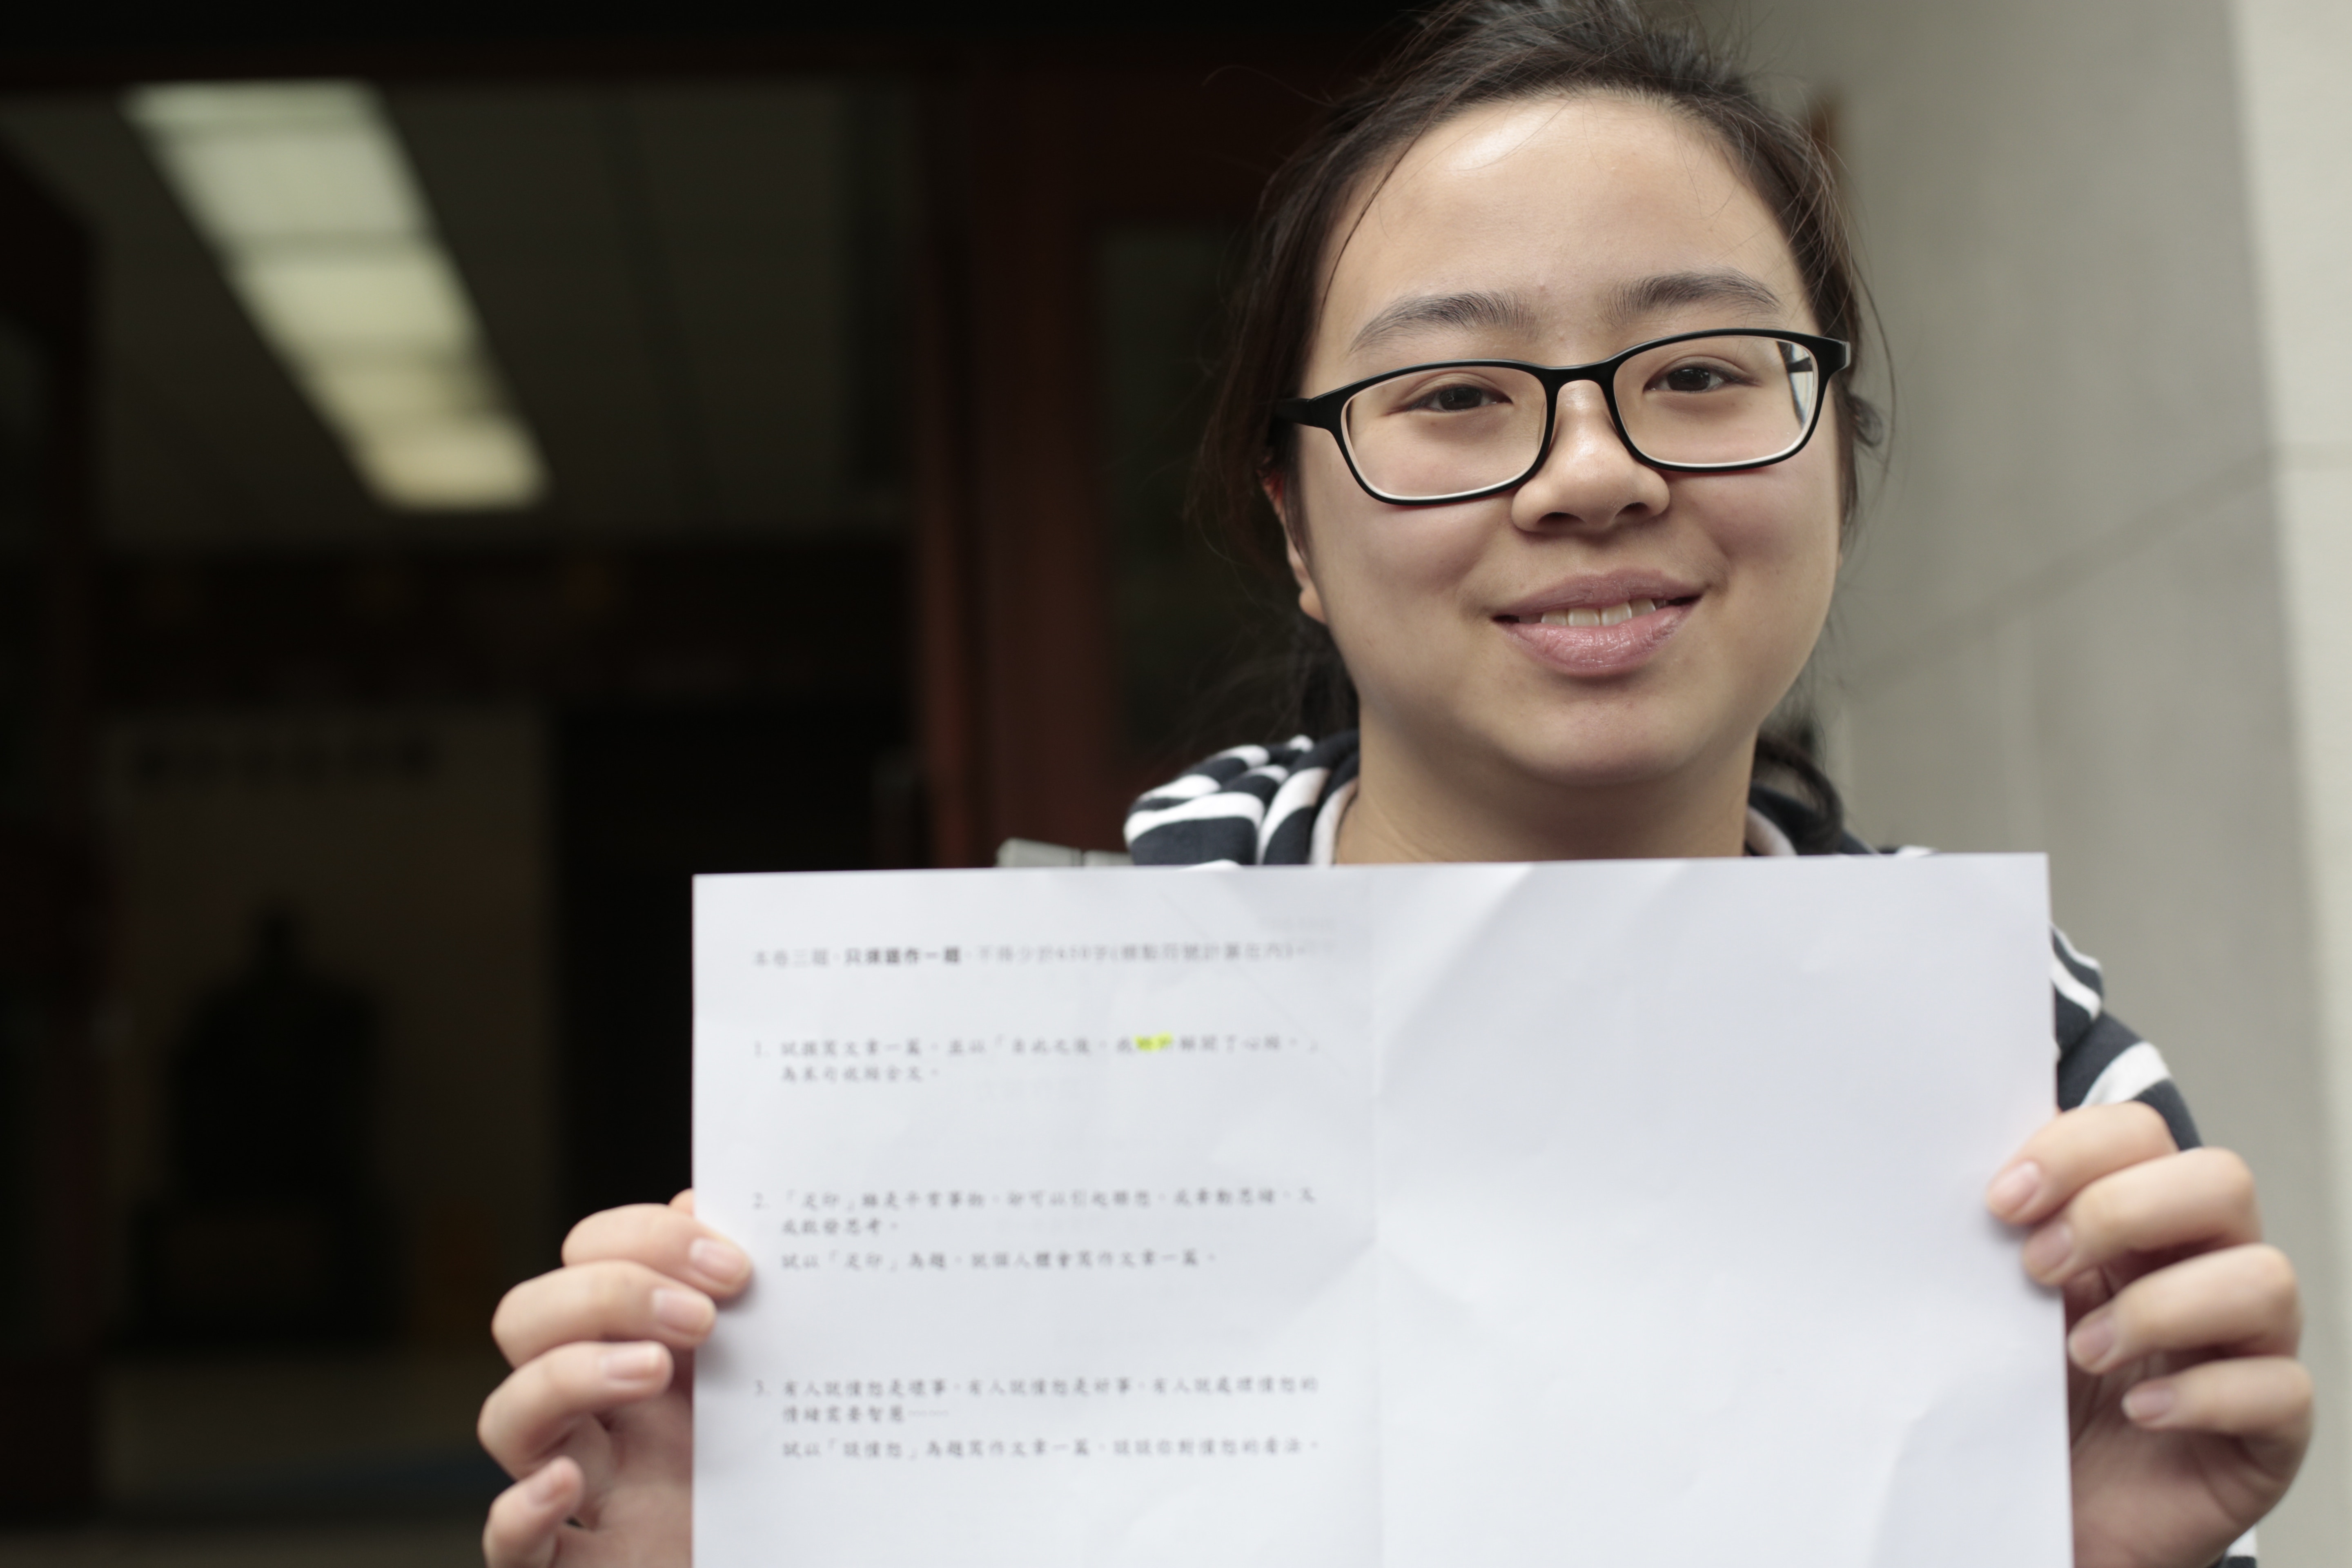 本卷三題，只須選作一題，不得少於650字(標點符號計算在內)。
1. 試撰寫文章一篇，並以「自此之後，我終於解開了心結。」
為末句收結全文。
2. 「足印」雖是平常事物，卻可以引起聯想，或牽動思緒，又
或啟發思考。
試以「足印」為題，就個人體會寫作文章一篇。
3. 有人說憤怒是壞事，有人說憤怒是好事，有人說處理憤怒的
情緒需要智慧……
試以「談憤怒」為題寫作文章一篇，談談你對憤怒的看法。